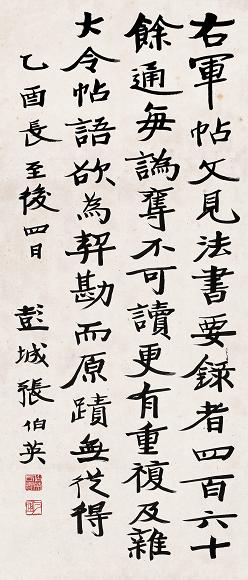 右軍帖文見法書要錄者四百六十
餘通每譌奪不可讀更有重複及雜
大令帖語欲為斠勘而原蹟無從得
乙酉長至後四日 彭城張伯英